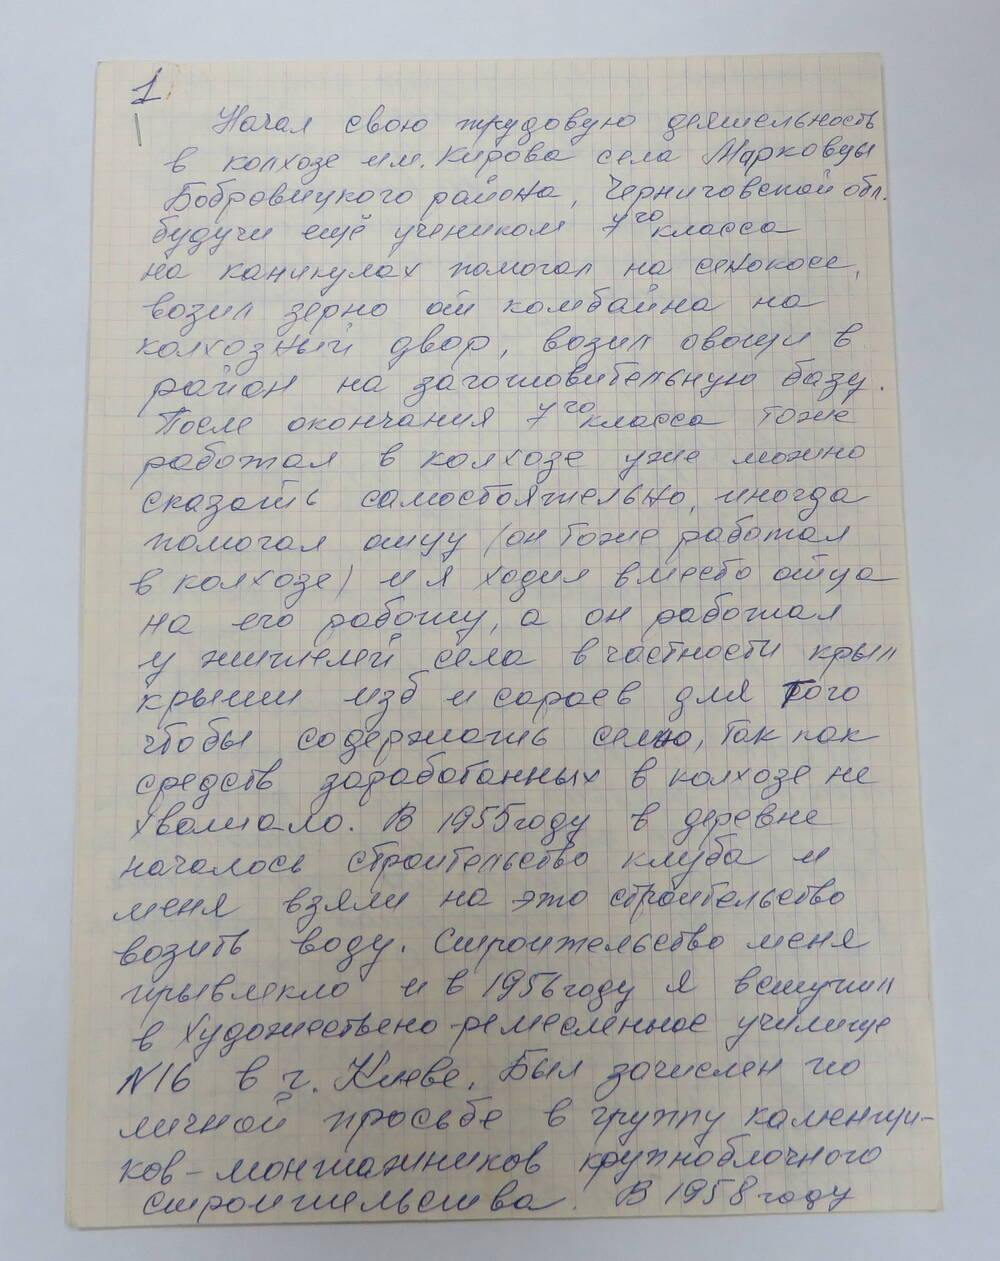 1
Начал свою трудовую деятельность
в колхозе им. Кирова села Марковцы
Бобровицкого района, Черниговской обл.
будучи ещё учеником 7го класса
на каникулах помогал на сенокосе,
возил зерно от комбайна на
колхозный двор, возил овощи в
район на заготовительную базу.
После окончания 7го класса тоже
работал в колхозе уже можно
сказать самостоятельно, иногда
помогал отцу (он тоже работал
в колхозе) и я ходил вместо отца
на его работу, а он работал
у жителей села в частности крыл
крыши изб и сараев для того
чтобы содержать семью, так как
средств заработанных в колхозе не
хватало. В 1955 году в деревне
началось строительство клуба и
меня взяли на это строительство
возить воду. Строительство меня
привлекло и в 1956 году я вступил
в Художествено-ремесленное училище
N16 в г. Киеве. Был зачислен по
личной просьбе в группу каменщи-
ков-монтажников крупноблочного
строительства. В 1958 году